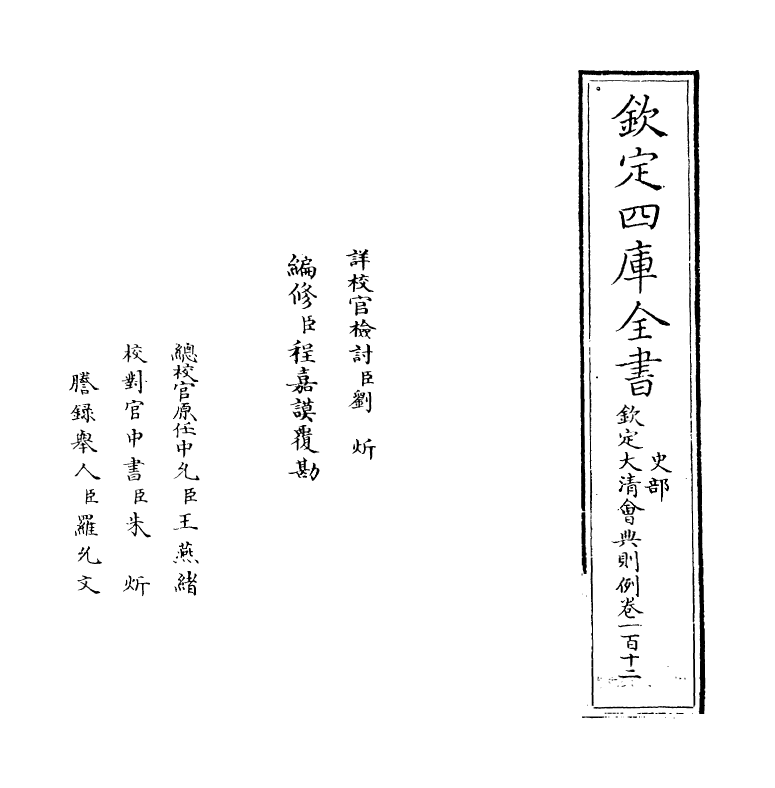 欽定四庫全書
史部
欽定大清會典則例卷一百十二
詳校官檢討臣劉炘
編修臣程嘉謨覆勘
總校官原任中允臣王燕緒
校對官中書臣朱炘
謄録舉人臣羅允文